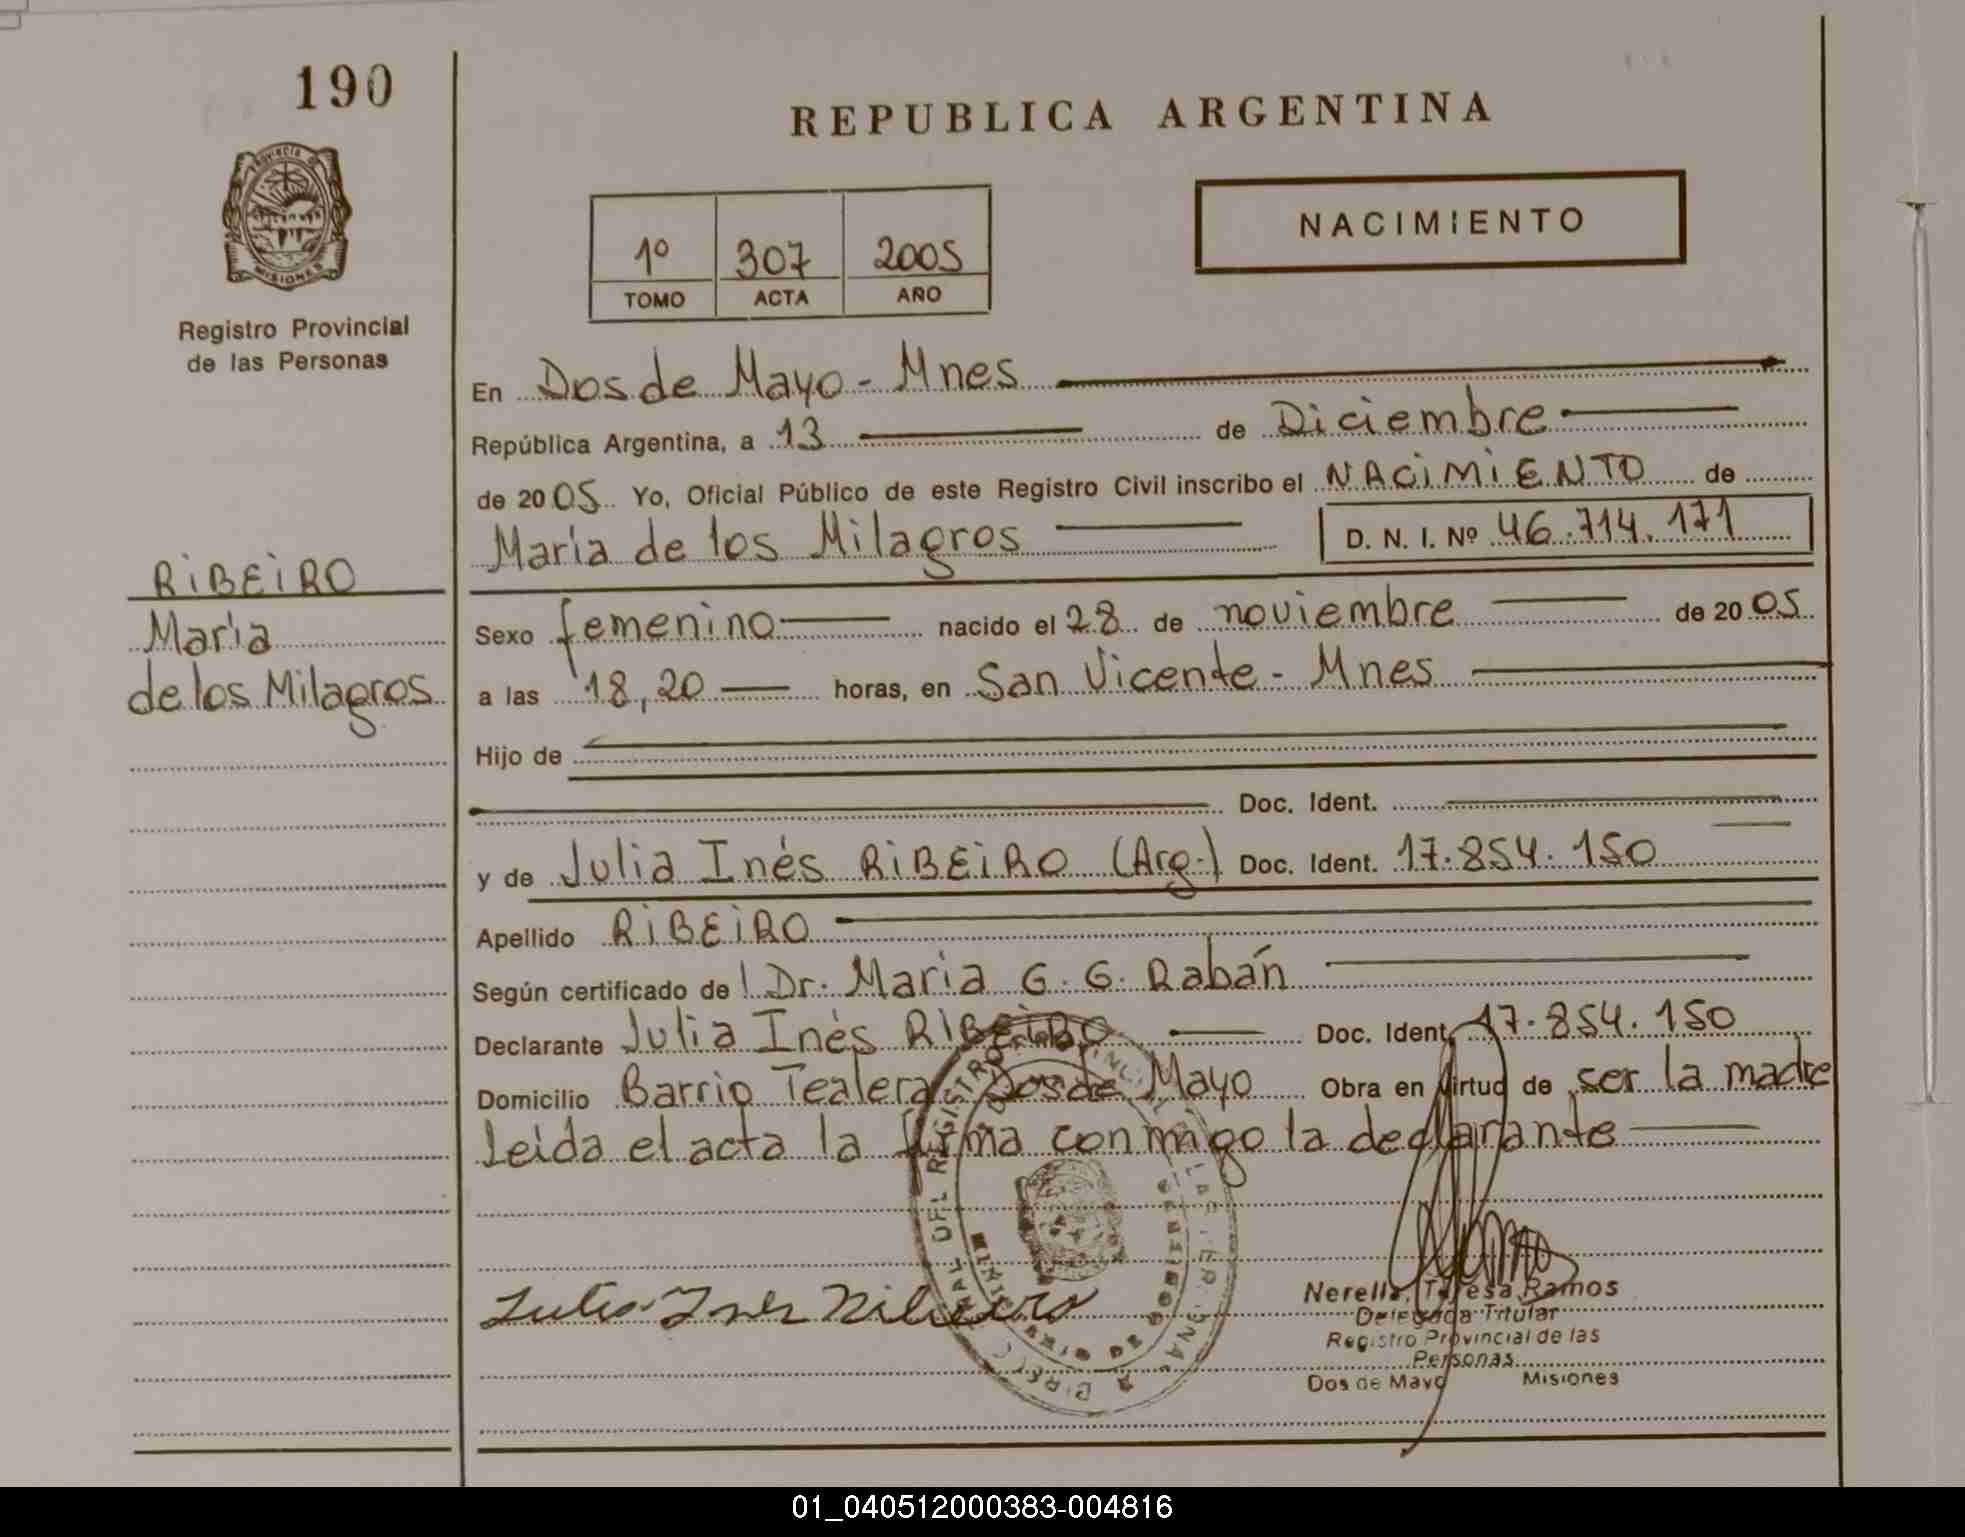 190
PROVINCIA DE
MISIONES
Registro Provincial
de las Personas
RiBEiRO
María
de los Milagros
REPUBLICA ARGENTINA
NACIMIENTO
1º 307 2005
TOMO ACTA AÑO
En Dos de Mayo - Mnes
República Argentina, a 13 de Diciembre
de 2005 Yo, Oficial Público de este Registro Civil inscribo el NACiMiENTO de
María de los Milagros D. N. I. Nº 46.714.171
Sexo femenino nacido el 28 de noviembre de 2005
a las 18,20 horas, en San Vicente - Mnes
Hijo de
Doc. Ident.
y de Julia Inés RiBEiRO (Arg.) Doc. Ident. 17.854.150
Apellido RiBEiRO
Según certificado de Dr. Maria G. G. Rabán
Declarante Julia Inés RiBEiRO Doc. Ident. 17.854.150
Domicilio Barrio Tealera Dos de Mayo Obra en virtud de ser la madre
Leida el acta la firma conmigo la declarante
Julia Ines Ribeiro
Nerella, Teresa Ramos
Delegada Titular
Registro Provincial de las
Personas
Dos de Mayo Misiones
01_040512000383-004816